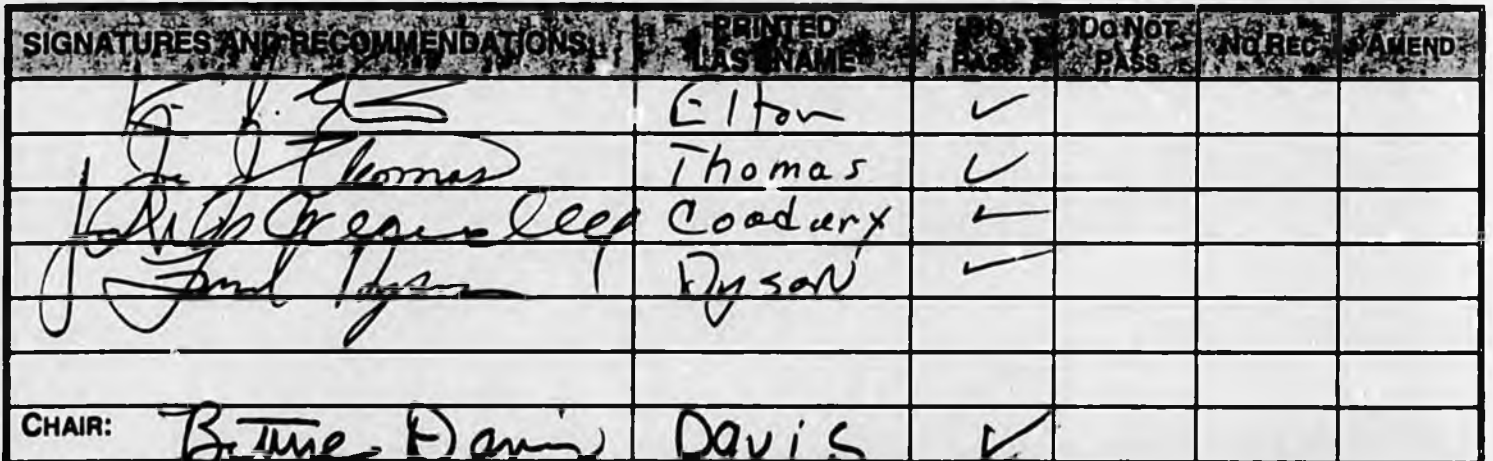 SIGNATURES AND RECOMMENDATIONS PRINTED LAST NAME DO PASS DO NOT PASS NO REC AMEND
Elton ✓
Thomas Thomas ✓
✓
Fred Dyson Dyson ✓
CHAIR: Bettye Davis Davis ✓